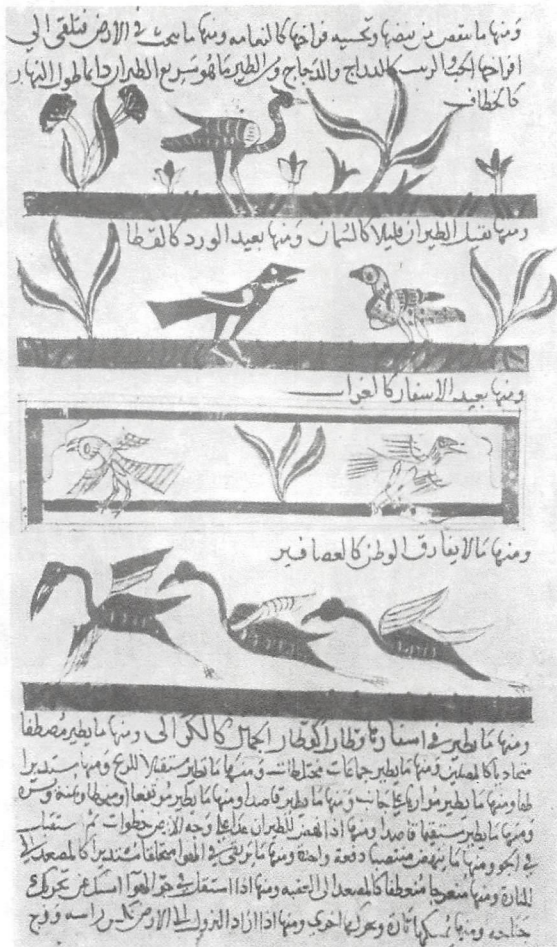 ومنها ما ينقص من بيضها وتحسيه فراخها كالنعامه ومنها ما يبحث في الارض فتلقي الي
افراخها الحب والزيت كالدراج والدجاج ومن الطير ما هو سريع الطيران دايما طول النهار
كالخطاف
ومنها ثقيل الطيران قليلا كالسمان ومنها بعيد الورد كالقطا
ومنها بعيد الاسفار كالغراب
ومنها ما لا يفارق الوطن كالعصافير
ومنها ما يطير في اسفارها قطارا كقطار الجمال كالكراكي ومنها ما يطير مصطفا
متحاذيا كالمصلين ومنها ما يطير جماعات مختلطات ومنها ما يطير مستقبلا للريح ومنها مستديرا
ومنها ما يطير موازيا جانب ومنها ما يطير قاصدا ومنها ما يطير مرتفعا
ومنها ما يطير مستقيما قاصدا ومنها اذا نهض للطيران عدا على وجه الارض خطوات ثم استقل
في الجو ومنها ما ينهض منتصبا دفعة واحدة ومنها ما يرتقي في الهوا مستديرا كالمصعد الى
المنارة ومنها منعرجا منعطفا كالمصعد الى العقبه ومنها اذا استقل في جو الهوا امسك عن تحريك
جناحيه ومنها يمسكها تارة ويحركها اخري ومنها اذا اراد النزول الى الارض نكس راسه وزج